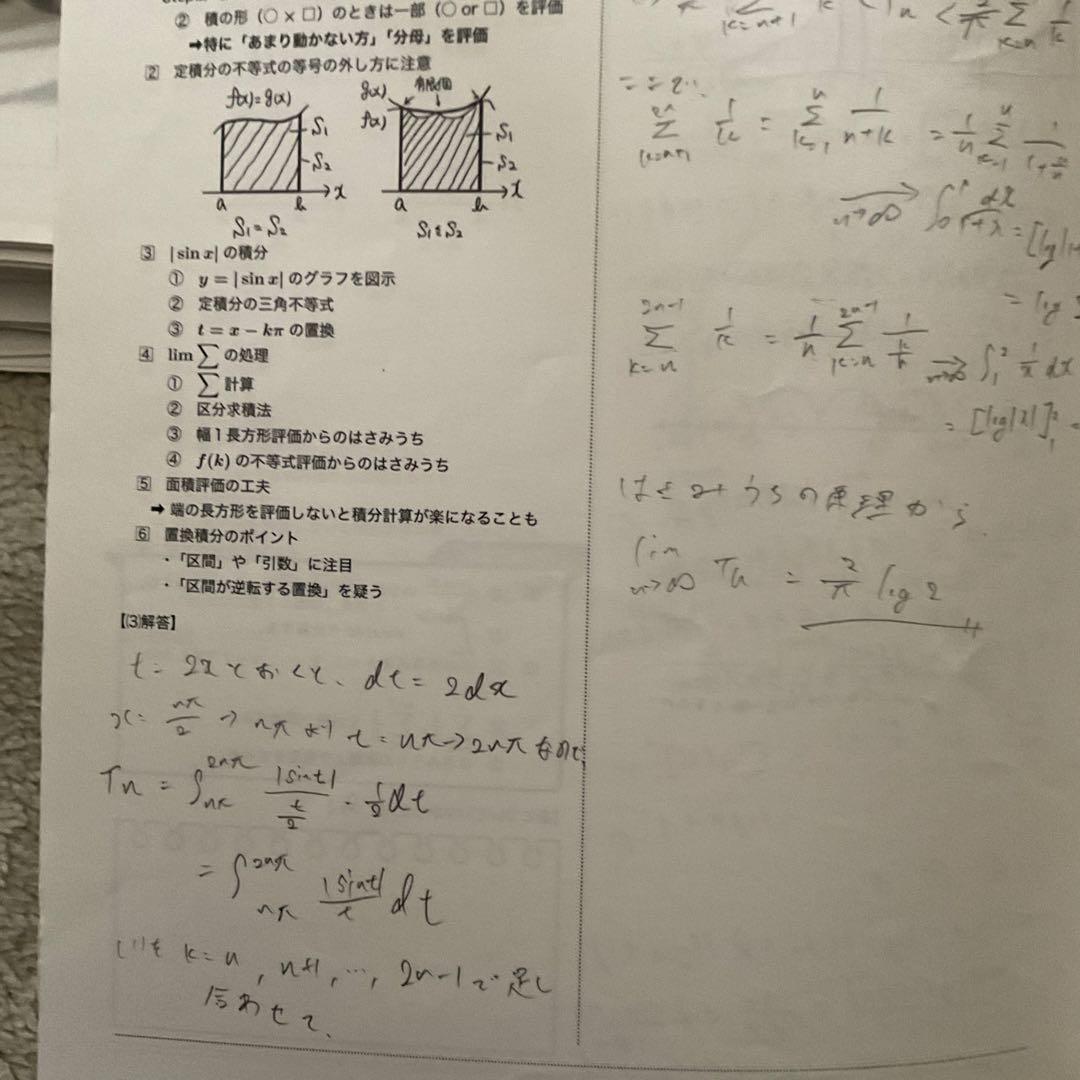 ② 積の形（○ × □）のときは一部（○ or □）を評価
➡特に「あまり動かない方」「分母」を評価
2 定積分の不等式の等号の外し方に注意
f(x)=g(x)
S1
S2
a b x
S1=S2
g(x)
f(x)
S1
S2
a b x
S1≦S2
3 |sin x| の積分
① y = |sin x| のグラフを図示
② 定積分の三角不等式
③ t = x − kπ の置換
4 lim ∑ の処理
① ∑ 計算
② 区分求積法
③ 幅1長方形評価からのはさみうち
④ f(k) の不等式評価からのはさみうち
5 面積評価の工夫
➡ 端の長方形を評価しないと積分計算が楽になることも
6 置換積分のポイント
・「区間」や「引数」に注目
・「区間が逆転する置換」を疑う
【(3)解答】
t = 2x とおくと、dt = 2dx
x = nπ/2 → nπ より t = nπ → 2nπ なので
Tn = ∫_{nπ}^{2nπ} |sin t|/(t/2) · 1/2 dt
= ∫_{nπ}^{2nπ} |sin t|/t dt
k = n, n+1, …, 2n−1 で足し
合わせて、
∑_{k=n+1} 1/k < Tn < 2/π ∑_{k=n} 1/k
ここで、
∑_{k=n+1}^{2n} 1/k = ∑_{k=1}^{n} 1/(n+k) = 1/n ∑_{k=1}^{n} 1/(1+k/n)
→ (n→∞) ∫_0^1 dx/(1+x) = [log|1+
= log 2
∑_{k=n}^{2n−1} 1/k = 1/n ∑_{k=n}^{2n−1} 1/(k/n) → (n→∞) ∫_1^2 1/x dx
= [log|x|]_1^2 =
はさみうちの原理から、
lim_{n→∞} Tn = 2/π log 2